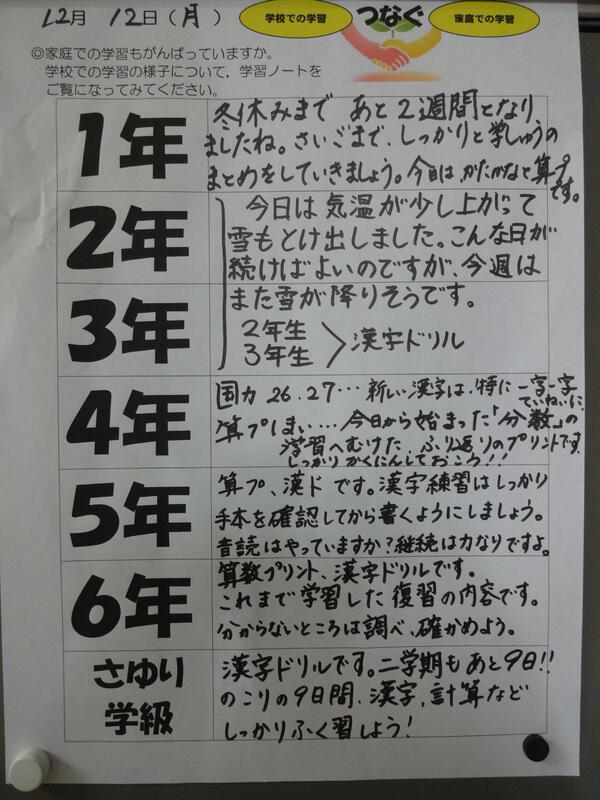 12月 12日(月)
学校での学習
つなぐ
家庭での学習
◎家庭での学習もがんばっていますか。
学校での学習の様子について、学習ノートを
ご覧になってみてください。
1年
冬休みまで あと2週間となり
ましたね。さいごまで、しっかりと学しゅうの
まとめをしていきましょう。今日は、かたかなと算プ
です。
2年
3年
今日は気温が少し上がって
雪もとけ出しました。こんな日が
続けばよいのですが、今週は
また雪が降りそうです。
2年生
3年生
漢字ドリル
4年
国力 26.27…新しい漢字は、特に一字一字
ていねいに。
算プ1まい…今日から始まった「分数」の
学習へむけた、ふり返りのプリントです。
しっかりかくにんしておこう!!
5年
算プ、漢ドです。漢字練習はしっかり
手本を確認してから書くようにしましょう。
音読はやっていますか?継続は力なりですよ。
6年
算数プリント、漢字ドリルです。
これまで学習した復習の内容です。
分からないところは調べ、確かめよう。
さゆり
学級
漢字ドリルです。二学期もあと9日!!
のこりの9日間、漢字、計算など
しっかりふく習しよう!